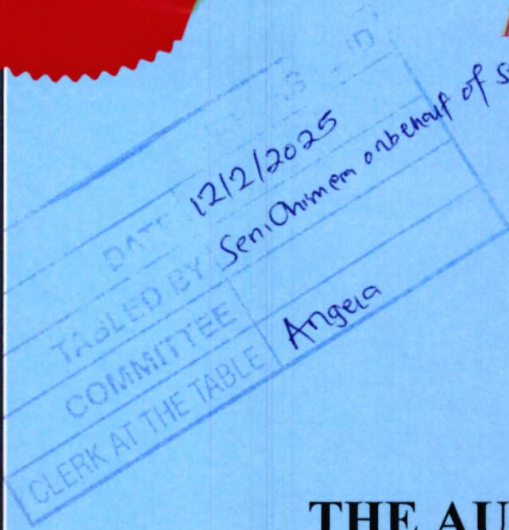 DATE 12/2/2025
TABLED BY Sen. Chimera onbehalf of
COMMITTEE
CLERK AT THE TABLE Angela
THE AU